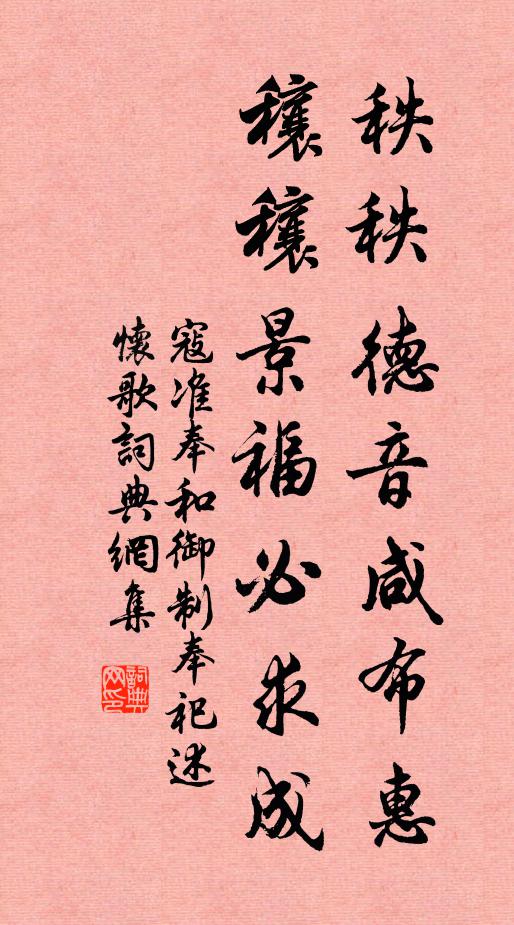 秩秩德音咸布惠
穰穰景福必求成
寇准奉和御制奉祀述
懷歌詞典網集
詞典网印